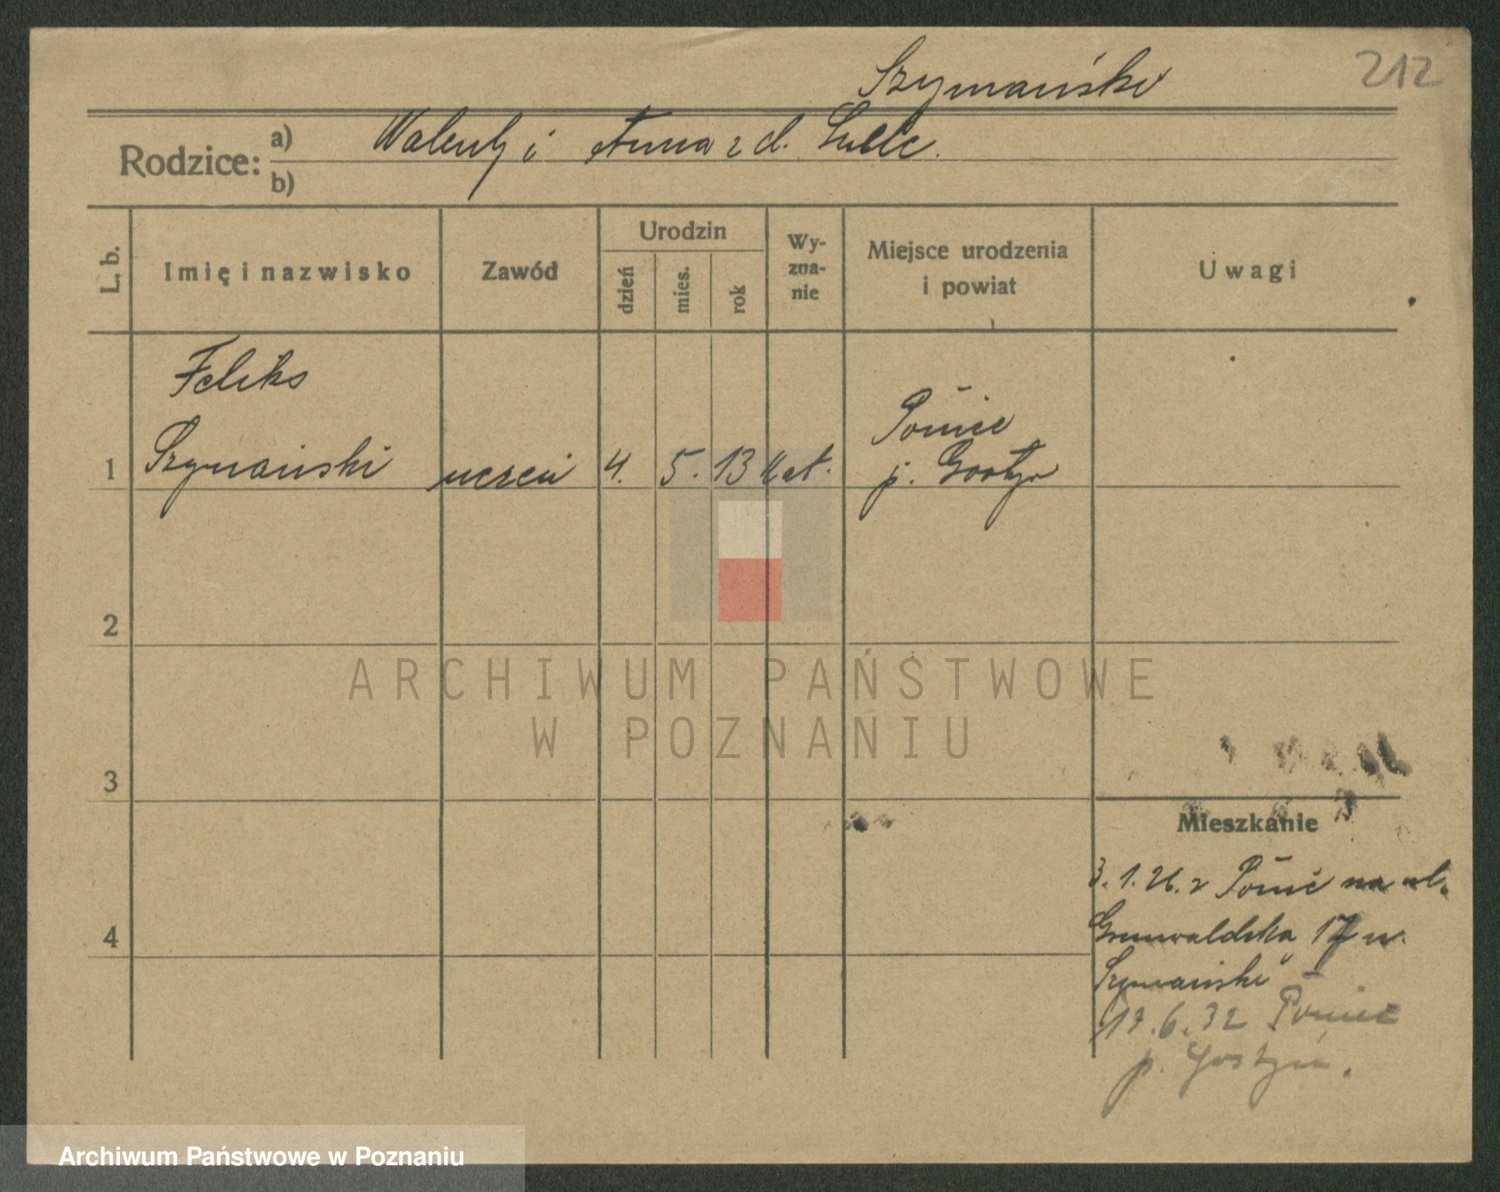 Szymański
212
Rodzice:
a) Walenty i Anna z d.
b)
L. b.
Imię i nazwisko
Zawód
Urodzin
dzień
mies.
rok
Wy-
zna-
nie
Miejsce urodzenia
i powiat
Uwagi
Feliks
1 Szymański uczeń 4. 5. 13 kat.
Poniec
p. Gostyń
2
3
4
ARCHIWUM PAŃSTWOWE
W POZNANIU
Mieszkanie
3.1.26. z Poniec na ul.
Grunwaldzka 17 u
Szymański
17.6.32 Poniec
p. Gostyń.
Archiwum Państwowe w Poznaniu